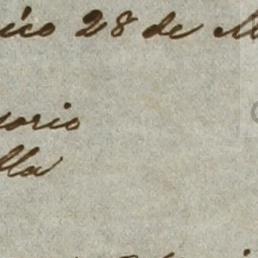 ico 28 de M
orio
lla